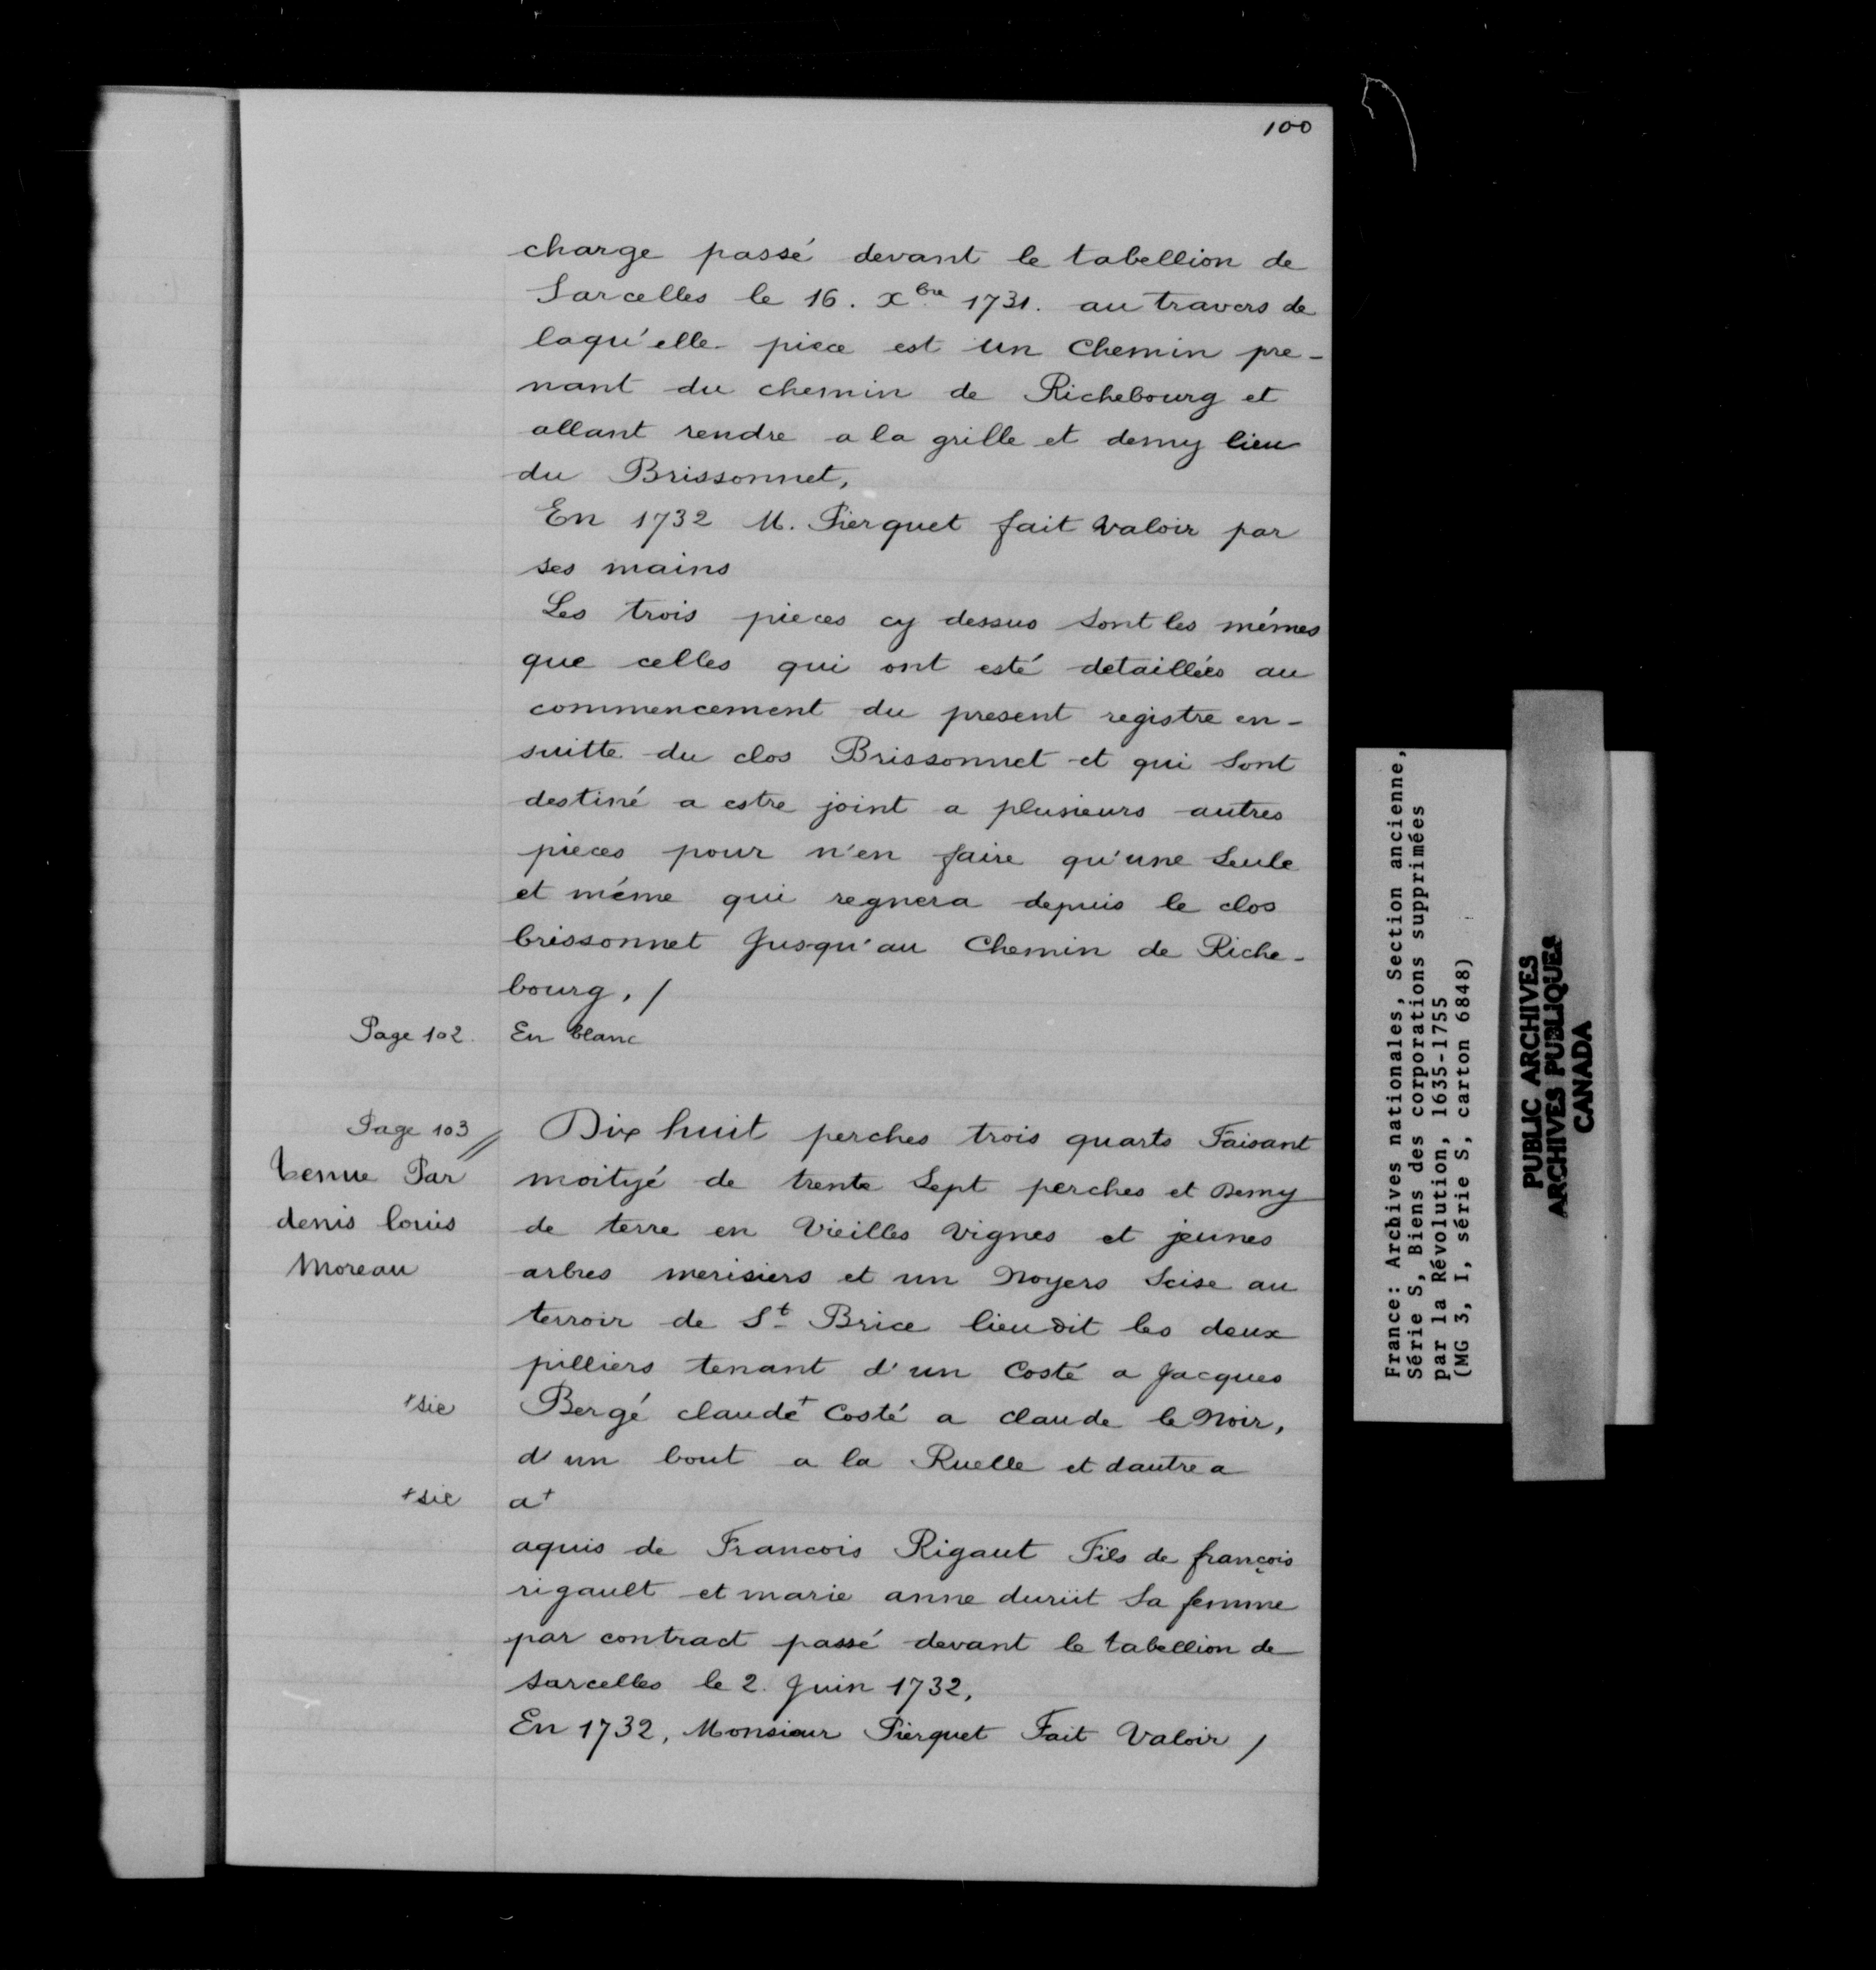 100
charge passé devant le tabellion de
Sarcelles le 16. xbre 1731. au travers de
laqu'elle piece est un Chemin pre-
nant du chemin de Richebourg et
allant rendre a la grille et demy lieu
du Brissonnet,
En 1732 M. Pierquet fait valoir par
ses mains
Les trois pieces cy dessus sont les mémes
que celles qui ont esté detaillées au
commencement du present registre en-
suitte du clos Brissonnet et qui sont
destiné a estre joint a plusieurs autres
pieces pour n'en faire qu'une seule
et méme qui regnera depuis le clos
brissonnet Jusqu'au Chemin de Riche-
bourg, /
Page 102. En blanc
Page 103 // Dix huit perches trois quarts Faisant
tenue Par moityé de trente Sept perches et Demy
denis louis de terre en Vieilles Vignes et jeunes
Moreau arbres merisiers et un Noyers Scise au
terroir de St Brice lieudit les deux
pilliers tenant d'un Costé a Jacques
+sic Bergé claude+ Costé a claude le Noir,
d'un bout a la Ruelle et dautre a
+sic a+
aquis de Francois Rigaut Fils de françois
rigault et marie anne duriit Sa femme
par contract passé devant le tabellion de
sarcelles le 2. Juin 1732,
En 1732, Monsieur Pierquet Fait Valoir /
France: Archives nationales, Section ancienne,
Série S, Biens des corporations supprimées
par la Révolution, 1635-1755
(MG 3, I, série S, carton 6848)
PUBLIC ARCHIVES
ARCHIVES PUBLIQUES
CANADA